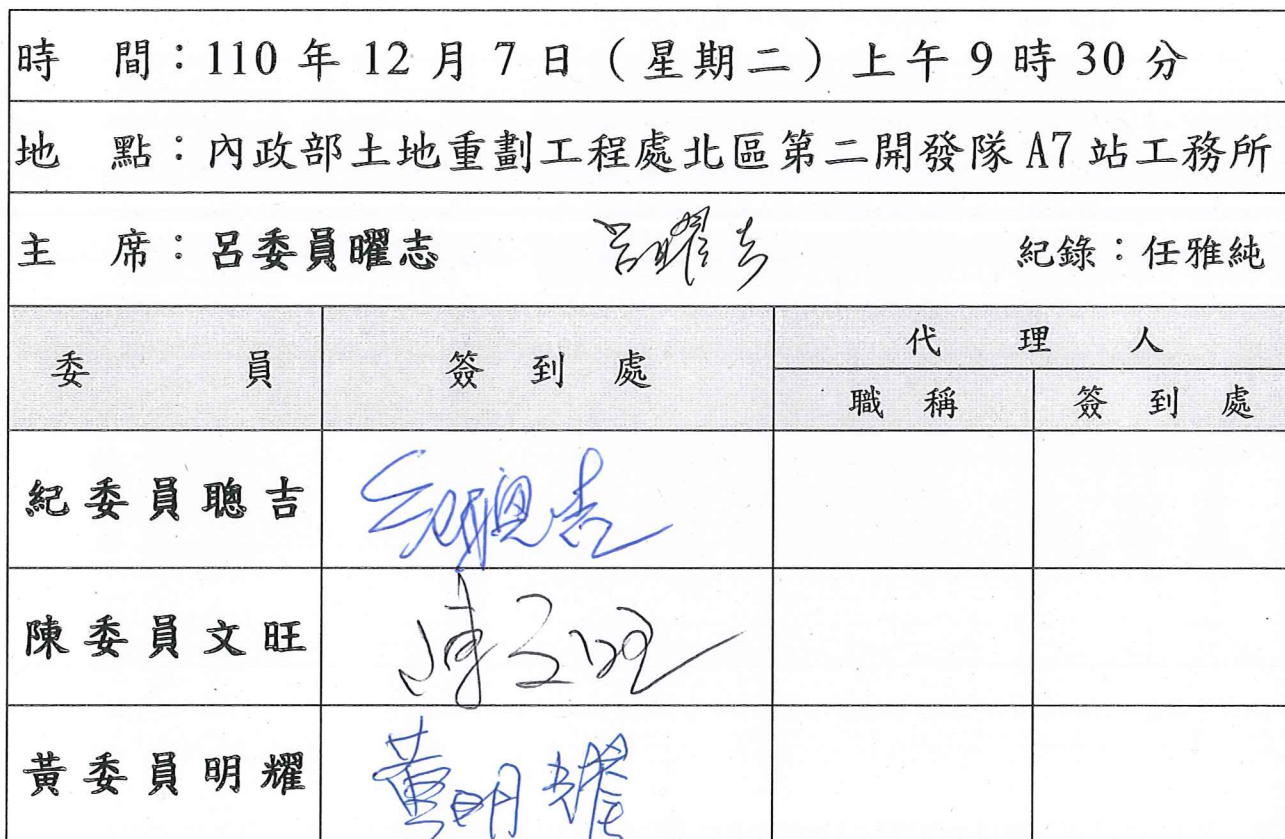 時　間：110 年 12 月 7 日（星期二）上午 9 時 30 分
地　點：內政部土地重劃工程處北區第二開發隊 A7 站工務所
主　席：呂委員曜志　呂曜志　紀錄：任雅純
委　員　簽　到　處　代　理　人
職　稱　簽　到　處
紀委員聰吉　紀聰吉
陳委員文旺　陳文旺
黃委員明耀　黃明耀